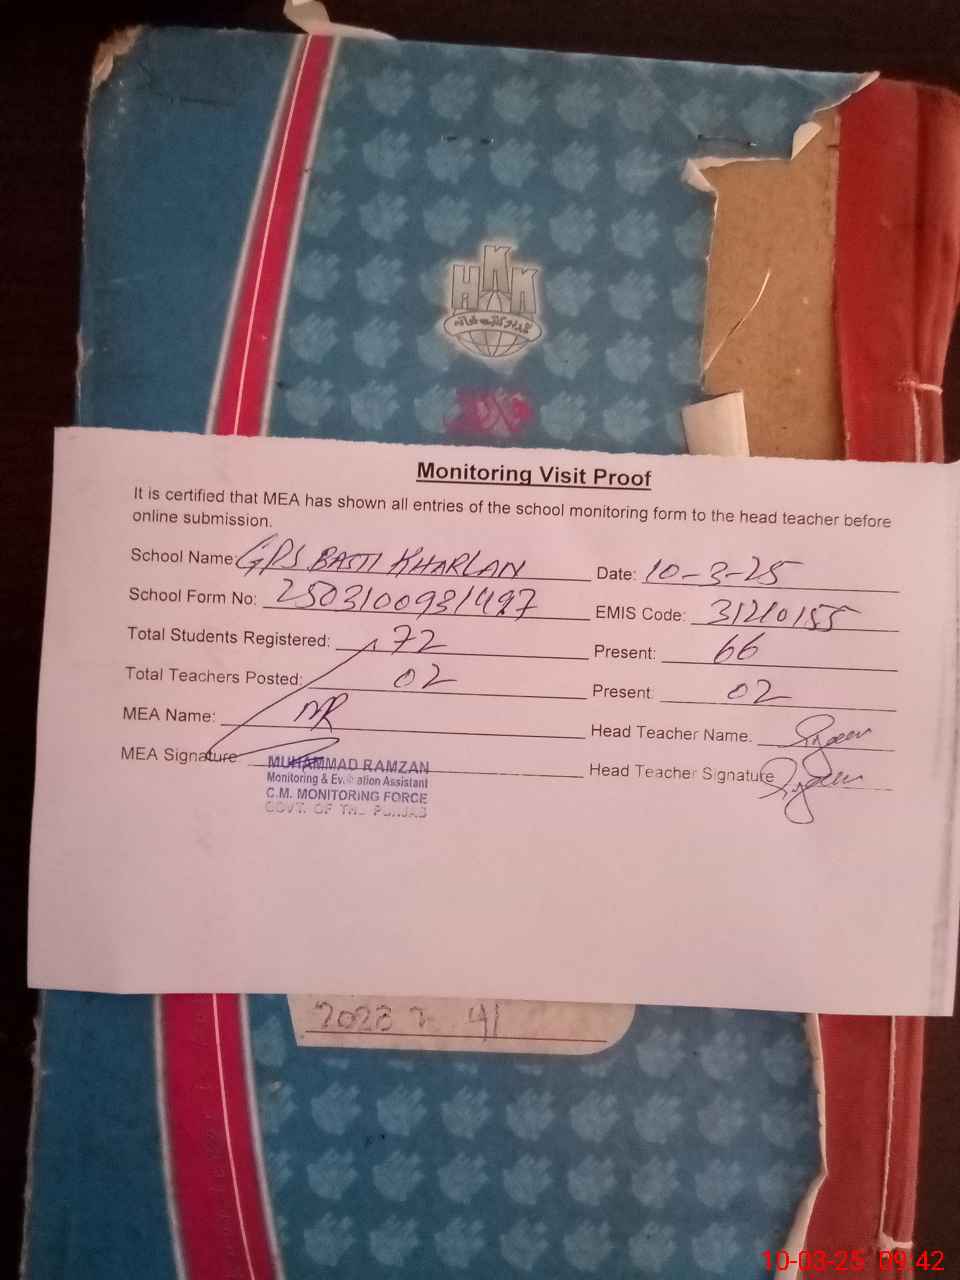 HKK
Monitoring Visit Proof
It is certified that MEA has shown all entries of the school monitoring form to the head teacher before
online submission.
School Name: GPS BASTI KHARLAN Date: 10-3-25
School Form No: 2503100931497 EMIS Code: 31210155
Total Students Registered: 72 Present: 66
Total Teachers Posted: 02 Present: 02
MEA Name: MR Head Teacher Name.
MEA Signature Head Teacher Signature
MUHAMMAD RAMZAN
Monitoring & Evaluation Assistant
C.M. MONITORING FORCE
GOVT. OF THE PUNJAB
41
10-03-25 09:42